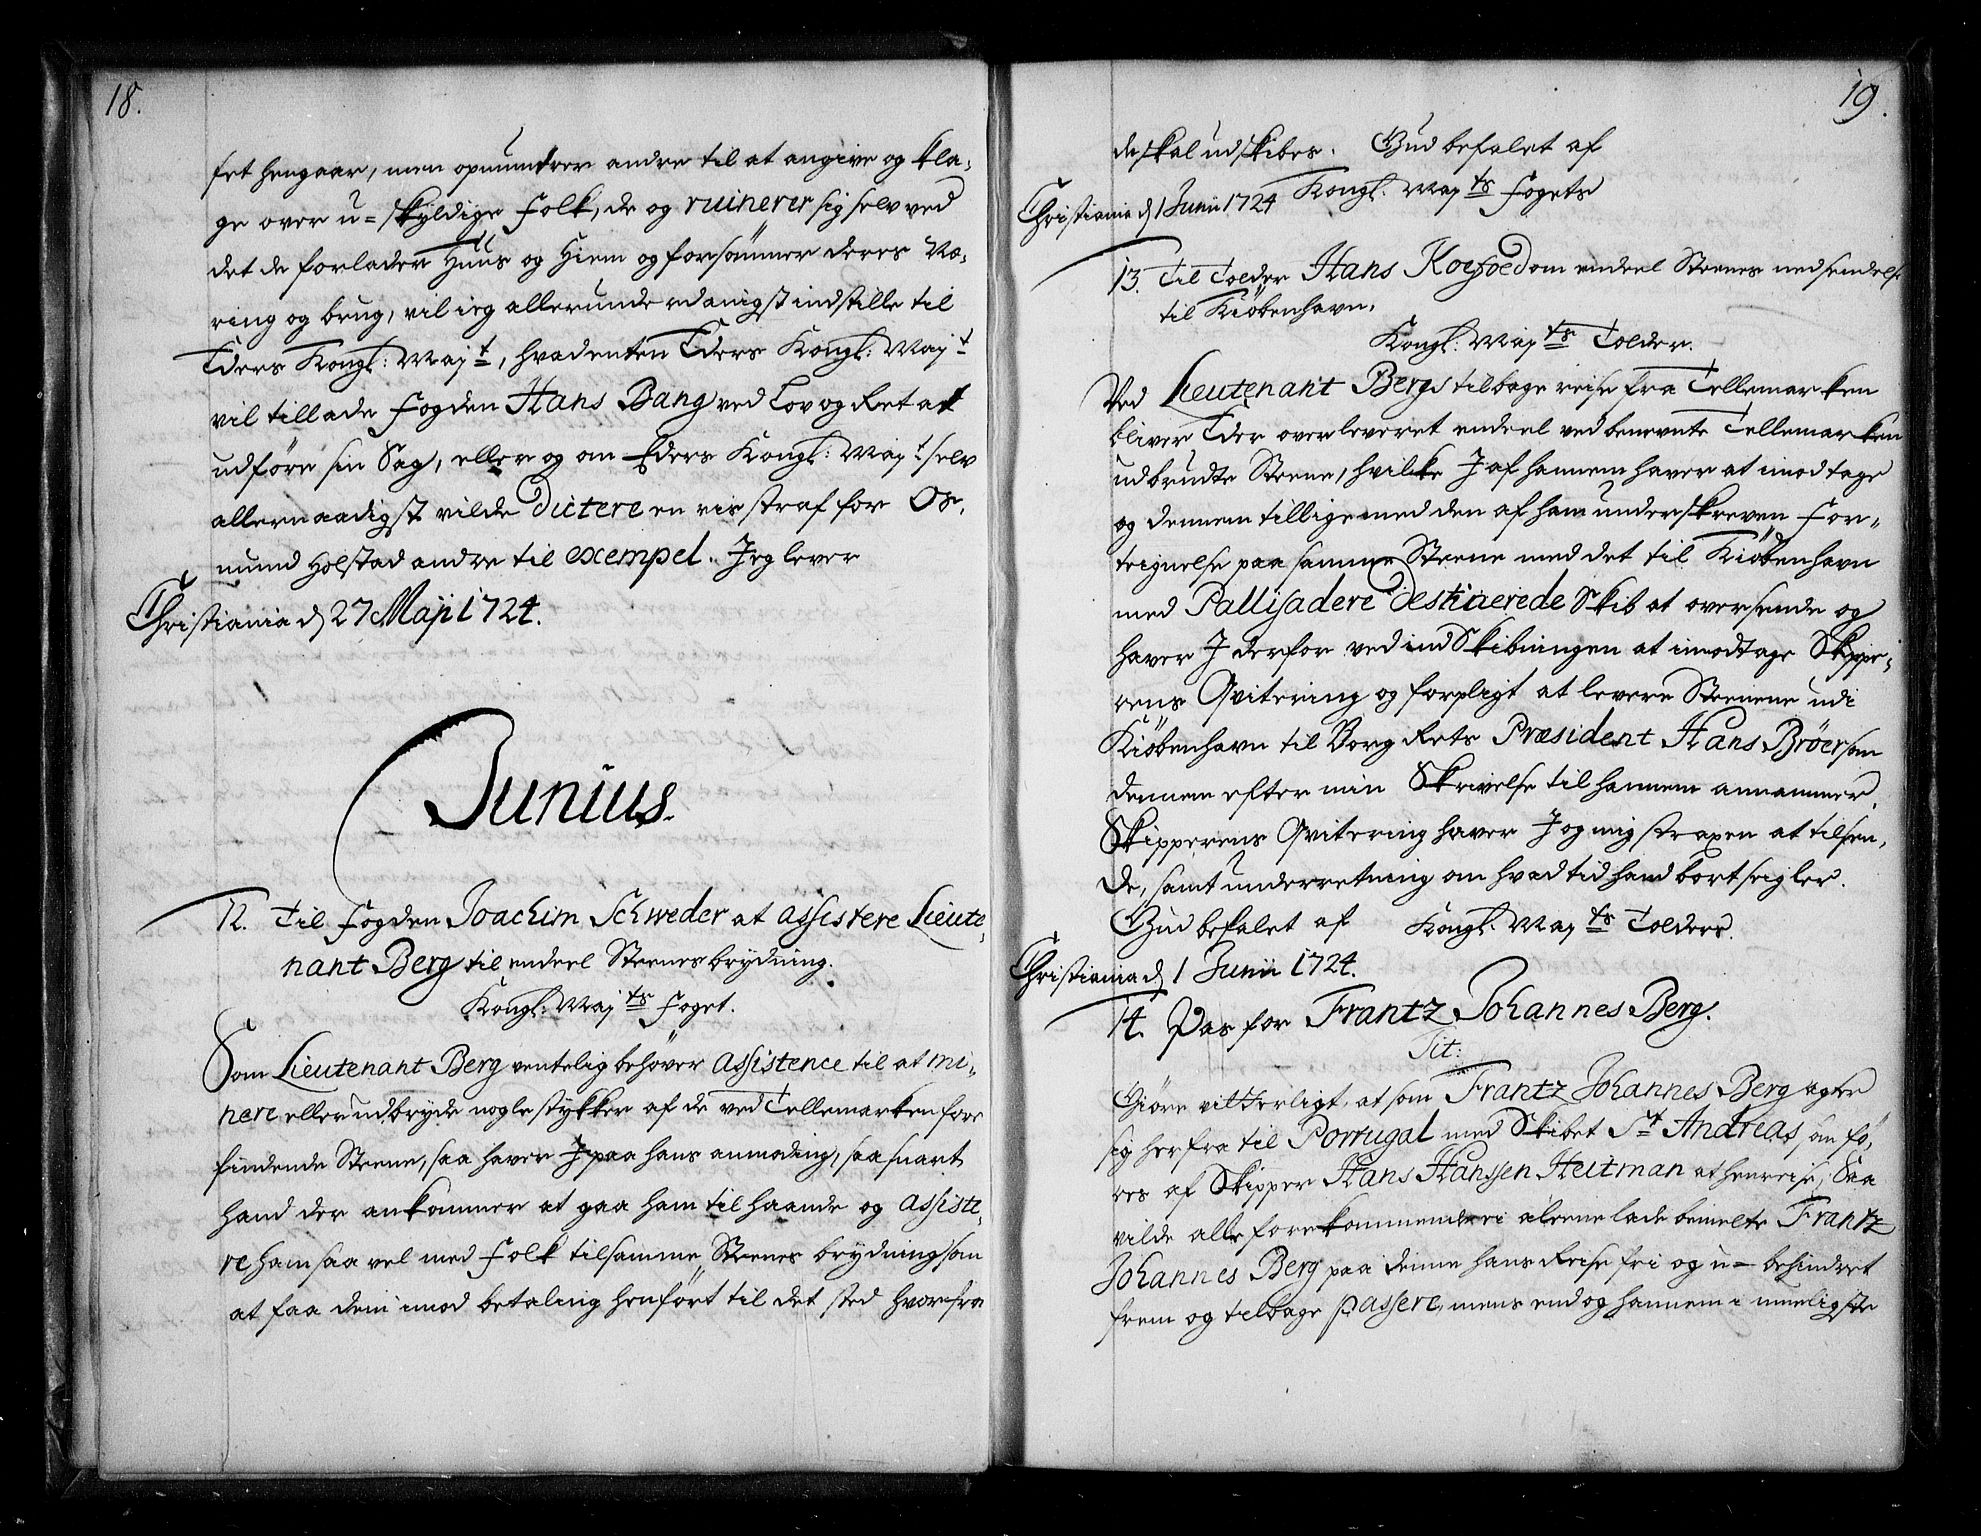 18.
fet hengaar, men opmuntrer andre til at angive og kla-
ge over u-skyldige Folk, de og ruinerer sig selv ved
det de forlader Huus og Hiem og forsømmer deres Næ-
ring og brug, vil ieg allerunderdanigst indstille til
Eders Kongl: Majt, hvad enten Eders Kongl: Majt
vil tillade Fogden Hans Bang ved Lov og Ret at
udføre sin Sag, eller og om Eders Kongl: Majt selv
allernaadigst vilde Dictere en vis straf for Os-
mund Holstad andre til exempel. Jeg lever
Christiania d 27 Maji 1724.
Junius.
12. Til Fogden Joachim Schweder at assistere Lieute-
nant Berg til endeel Steenes brydning.
Kongl: Majts Foget.
Som Lieutenant Berg ventelig behøver assistence til at mi-
nere eller udbryde nogle stykker af de ved Tellemarken fore
findende Steene, saa haver I paa hans anmoding, saa snart
hand der ankommer at gaa ham til haande og assiste-
re ham saa vel med Folk til samme Steenes brydning som
at faa dem imod betaling henført til det sted hvorfra
19.
de skal udskibes. Gud befalet af
Kongl. Majts Fogets
Christiania d 1 Junii 1724
13. Til Tolder Hans Koefoed om endeel Steenes nedsendelse
til Kiøbenhavn.
Kongl: Majts Tolder.
Ved Lieutenant Bergs tilbage reise fra Tellemarken
bliver Eder overleveret endeel ved benevnte Tellemarken
udbrudte Steene, hvilke I af hannem haver at imodtage
og dennem tillige med den af ham underskreven For-
teignelse paa samme Steene med det til Kiøbenhavn
med Pallisadere destinerede Skib at oversende og
haver I derfor ved indskibningen at imodtage Skippe-
rens Qvitering og forpligt at levere Steenene udi
Kiøbenhavn til Borg Rets Præsident Hans Brøer som
dennem efter min Skrivelse til hannem annammer.
Skipperens Qvitering haver I og mig straxen at tilsen-
de, samt underretning om hvad tid hand bort seigler.
Gud befalet af Kongl. Majts Tolders.
Christiania d 1 Junii 1724.
14. Pas for Frantz Johannes Berg.
Tit:
Giøre vitterligt, at som Frantz Johannes Berg agter
sig herfra til Portugal med Skibet St Andreas, som fø-
res af Skipper Hans Hanssen Heitman at henreise, Saa
vilde alle forekommende ei aleene lade bemelte Frantz
Johannes Berg paa denne hans Reise fri og u-behindret
frem og tilbage passere, mens end og hannem i mueligste